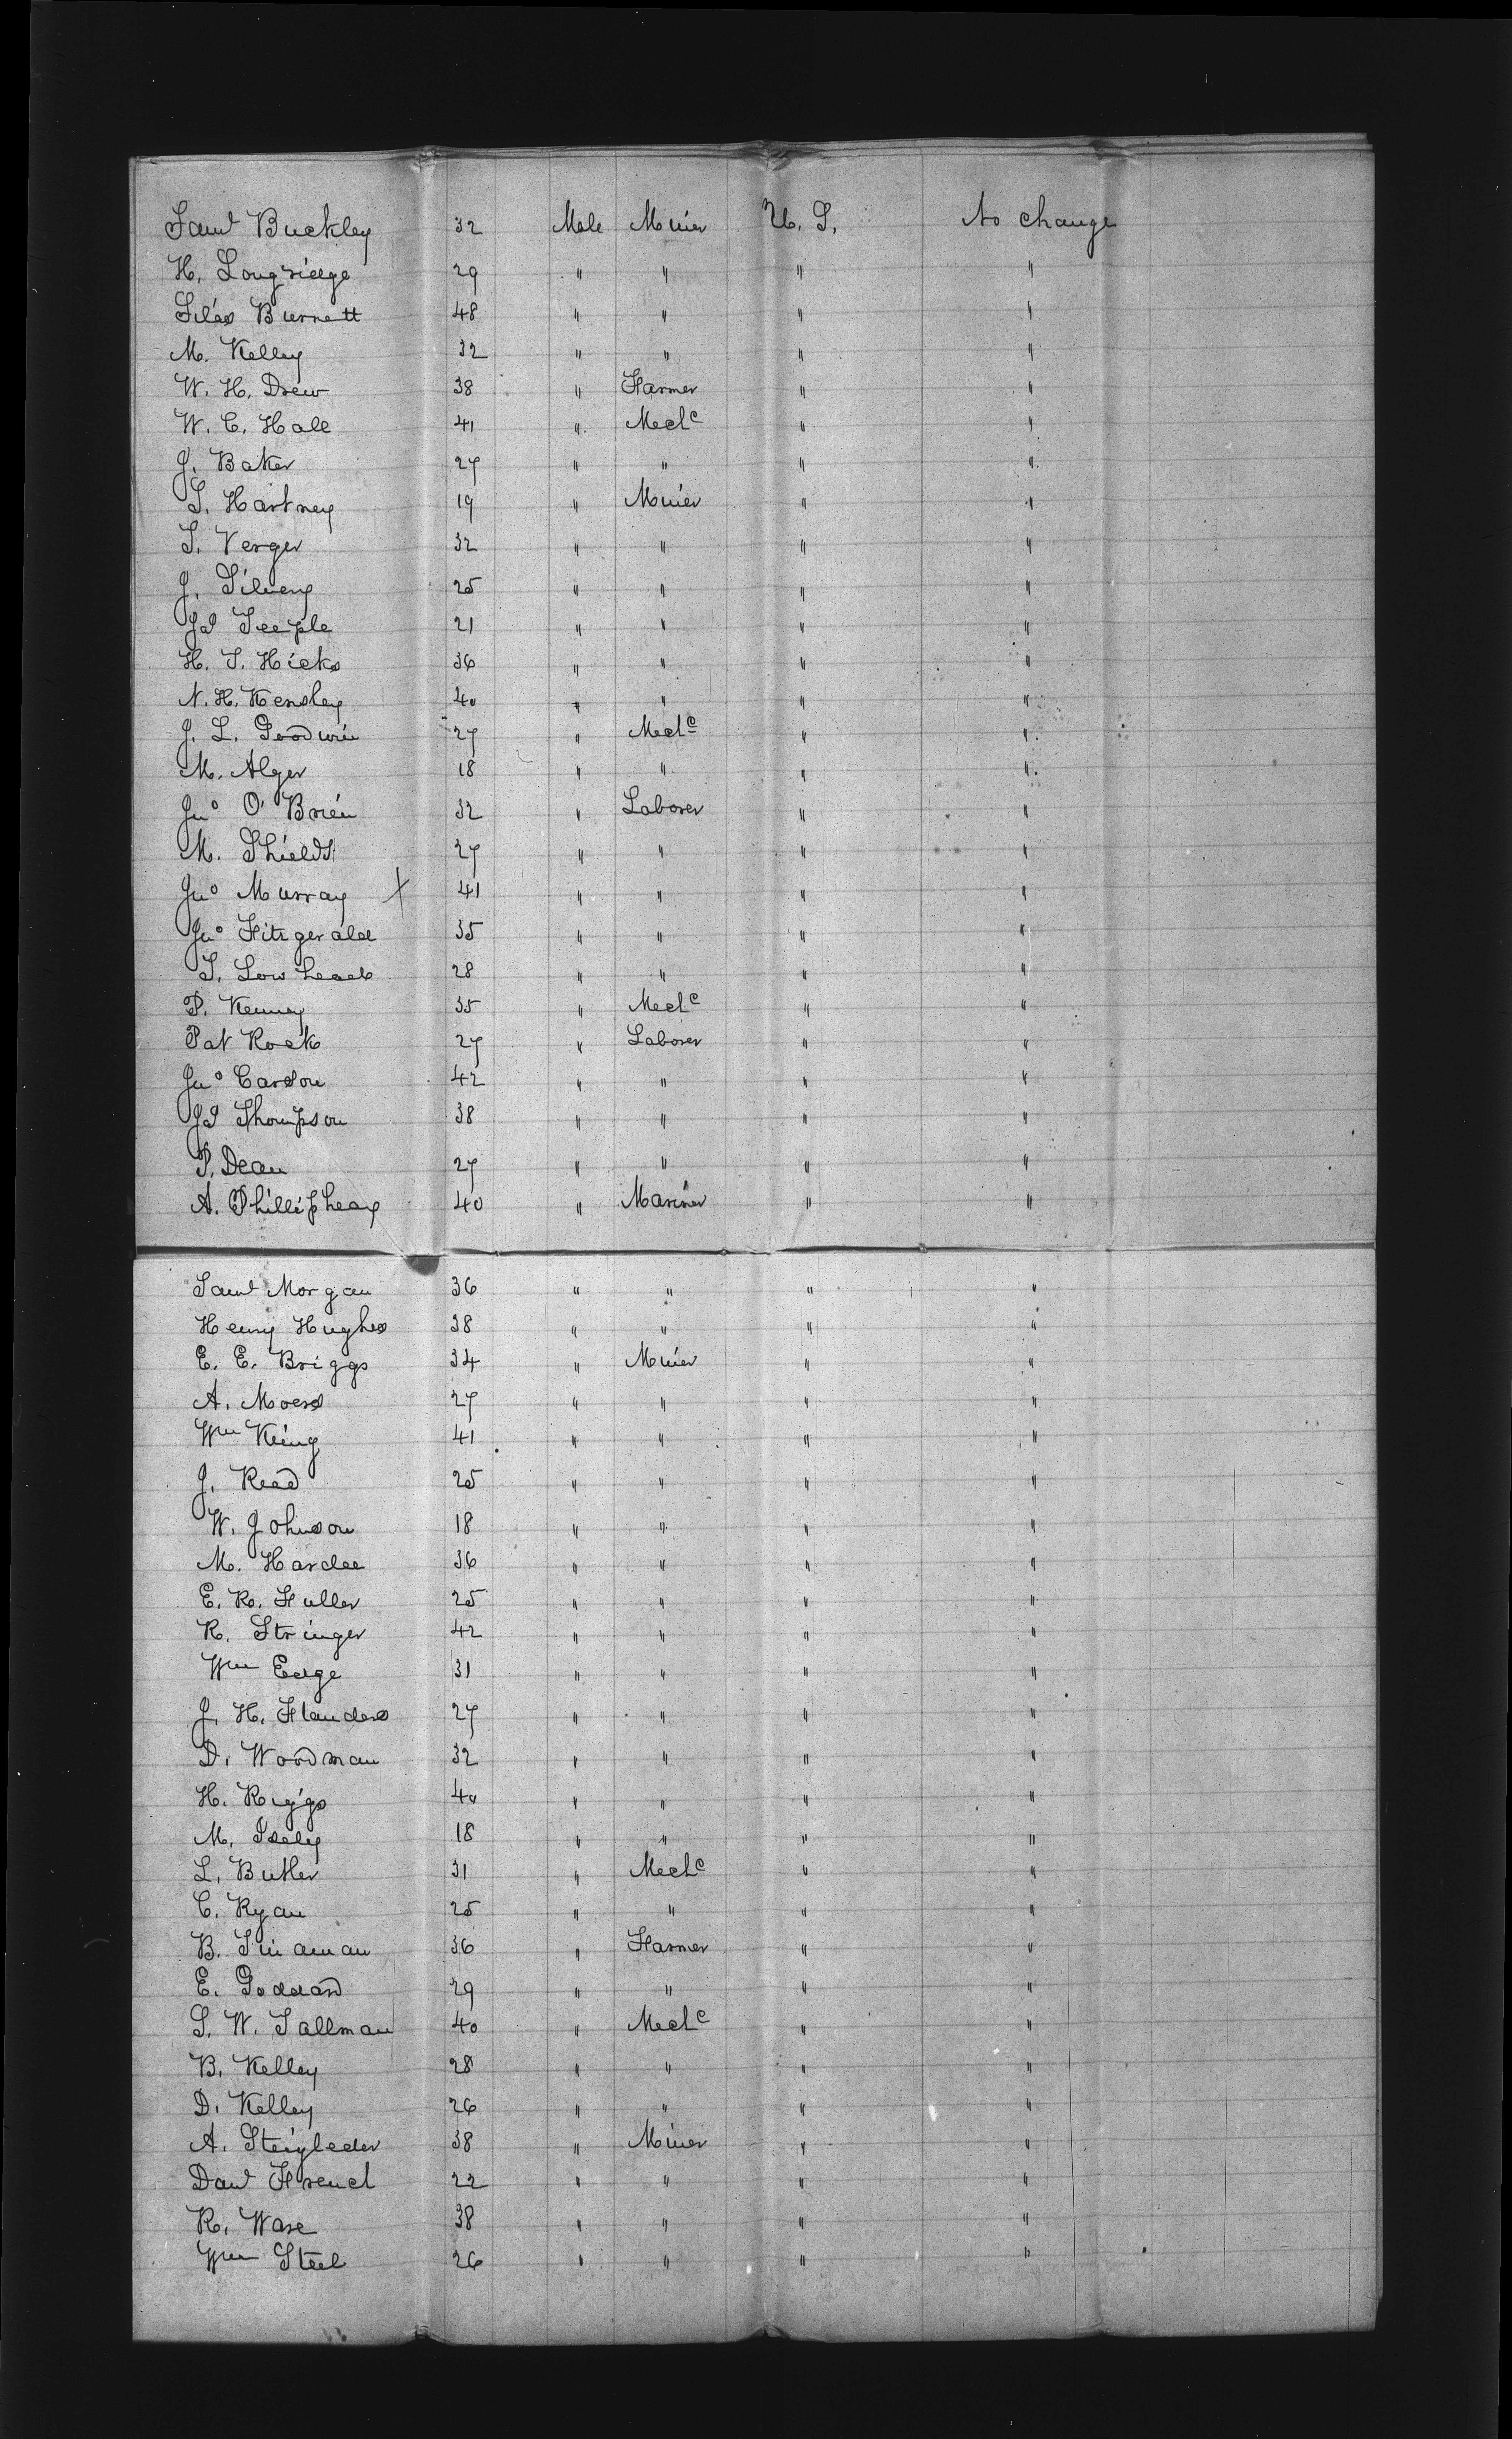 Saml Buckley 32 Male Miner U. S. No change
H. Longridge 29 " " " "
Silas Burnett 48 " " " "
M. Kelley 32 " " " "
W. H. Drew 38 " Farmer " "
W. C. Hall 41 " Mechc " "
J. Baker 27 " " " "
S. Hartney 19 " Miner " "
S. Verger 32 " " " "
J. Silvery 25 " " " "
Js Teeple 21 " " " "
H. S. Hicks 36 " " " "
N. H. Hensley 40 " " " "
J. L. Goodwin 27 " Mechc " "
M. Alger 18 " " " "
Jno O'Brien 32 " Laborer " "
M. Shields 27 " " " "
Jno Murray X 41 " " " "
Jno Fitzgerald 35 " " " "
28 " " " "
P. Kenney 35 " Mechc " "
Pat Rock 27 " Laborer " "
Jno Carson 42 " " " "
Js Thompson 38 " " " "
P. Dean 27 " " " "
A. 40 " Mariner " "
Saml Morgan 36 " " " "
Henry Hughes 38 " " " "
E. E. Briggs 34 " Miner " "
A. Moers 27 " " " "
Wm King 41 " " " "
J. Read 25 " " " "
W. Johnson 18 " " " "
M. Hardee 36 " " " "
E. R. Fuller 25 " " " "
R. Stringer 42 " " " "
Wm Edge 31 " " " "
J. H. Flanders 27 " " " "
D. Woodman 32 " " " "
H. Riggs 40 " " " "
M. 18 " " " "
L. Butler 31 " Mechc " "
C. Ryan 25 " " " "
B. Sinaman 36 " Farmer " "
E. Goddard 29 " " " "
S. W. Tallman 40 " Mechc " "
B. Kelley 28 " " " "
D. Kelley 26 " " " "
A. Steigleder 38 " Miner " "
Danl French 22 " " " "
R. Ware 38 " " " "
Wm Steel 26 " " " "